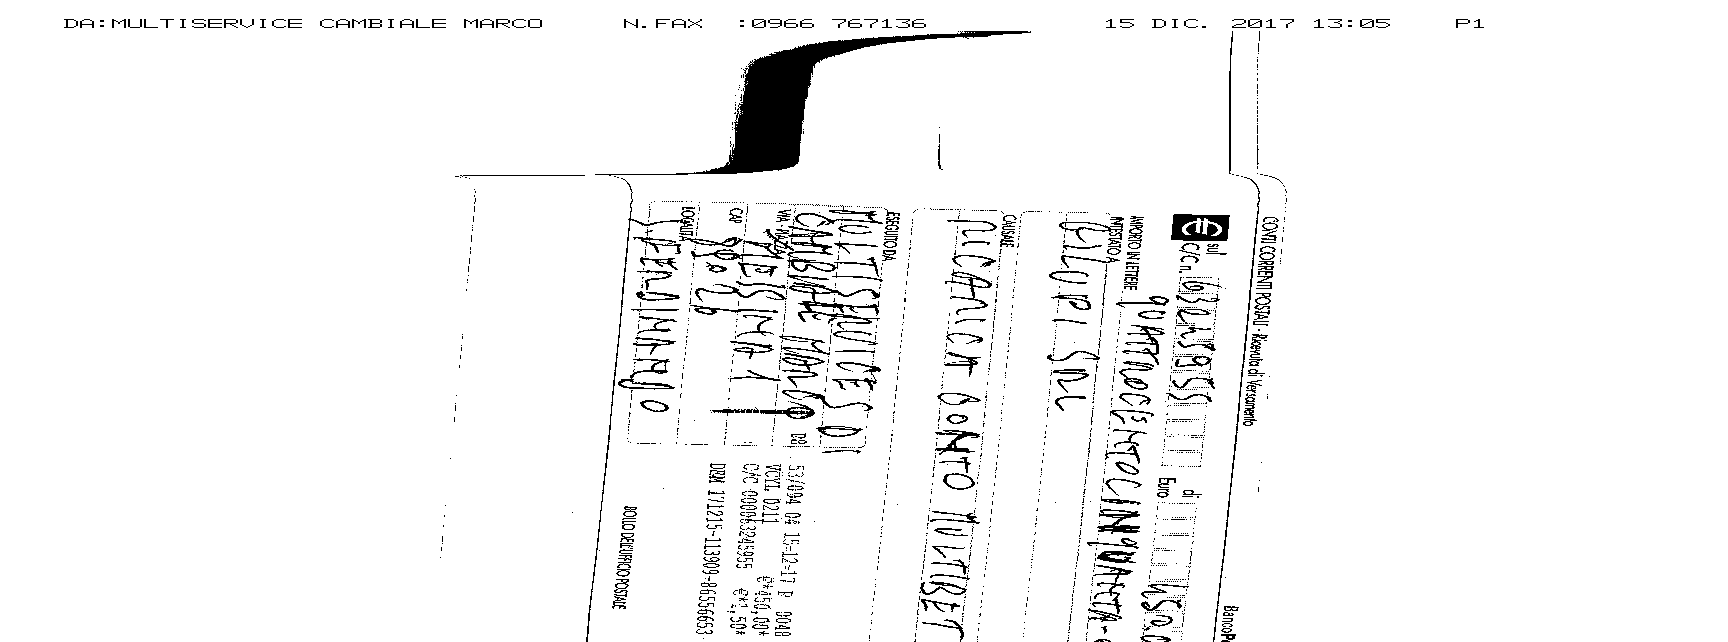 DA:MULTISERVICE CAMBIALE MARCO N.FAX :0966 767136 15 DIC. 2017 13:05 P1
CONTI CORRENTI POSTALI - Ricevuta di Versamento
BancoP
sul C/C n. 63245955 di Euro 450,0
IMPORTO IN LETTERE QUATTROCENTOCINQUANTA-
INTESTATO A
GILUPI SRL
CAUSALE
RICARICA CONTO MULTIBET
ESEGUITO DA
MULTISERVICES DI
CAMBIALE MARCO
VIA - PIAZZA
MESSINA 1
CAP
LOCALITÀ
53/094 04 15-12-17 P 0048
VCYL 0211 €*450,00*
C/C 000063245955 €*1,50*
DRM 171215-113909-86556653
BOLLO DELL'UFFICIO POSTALE